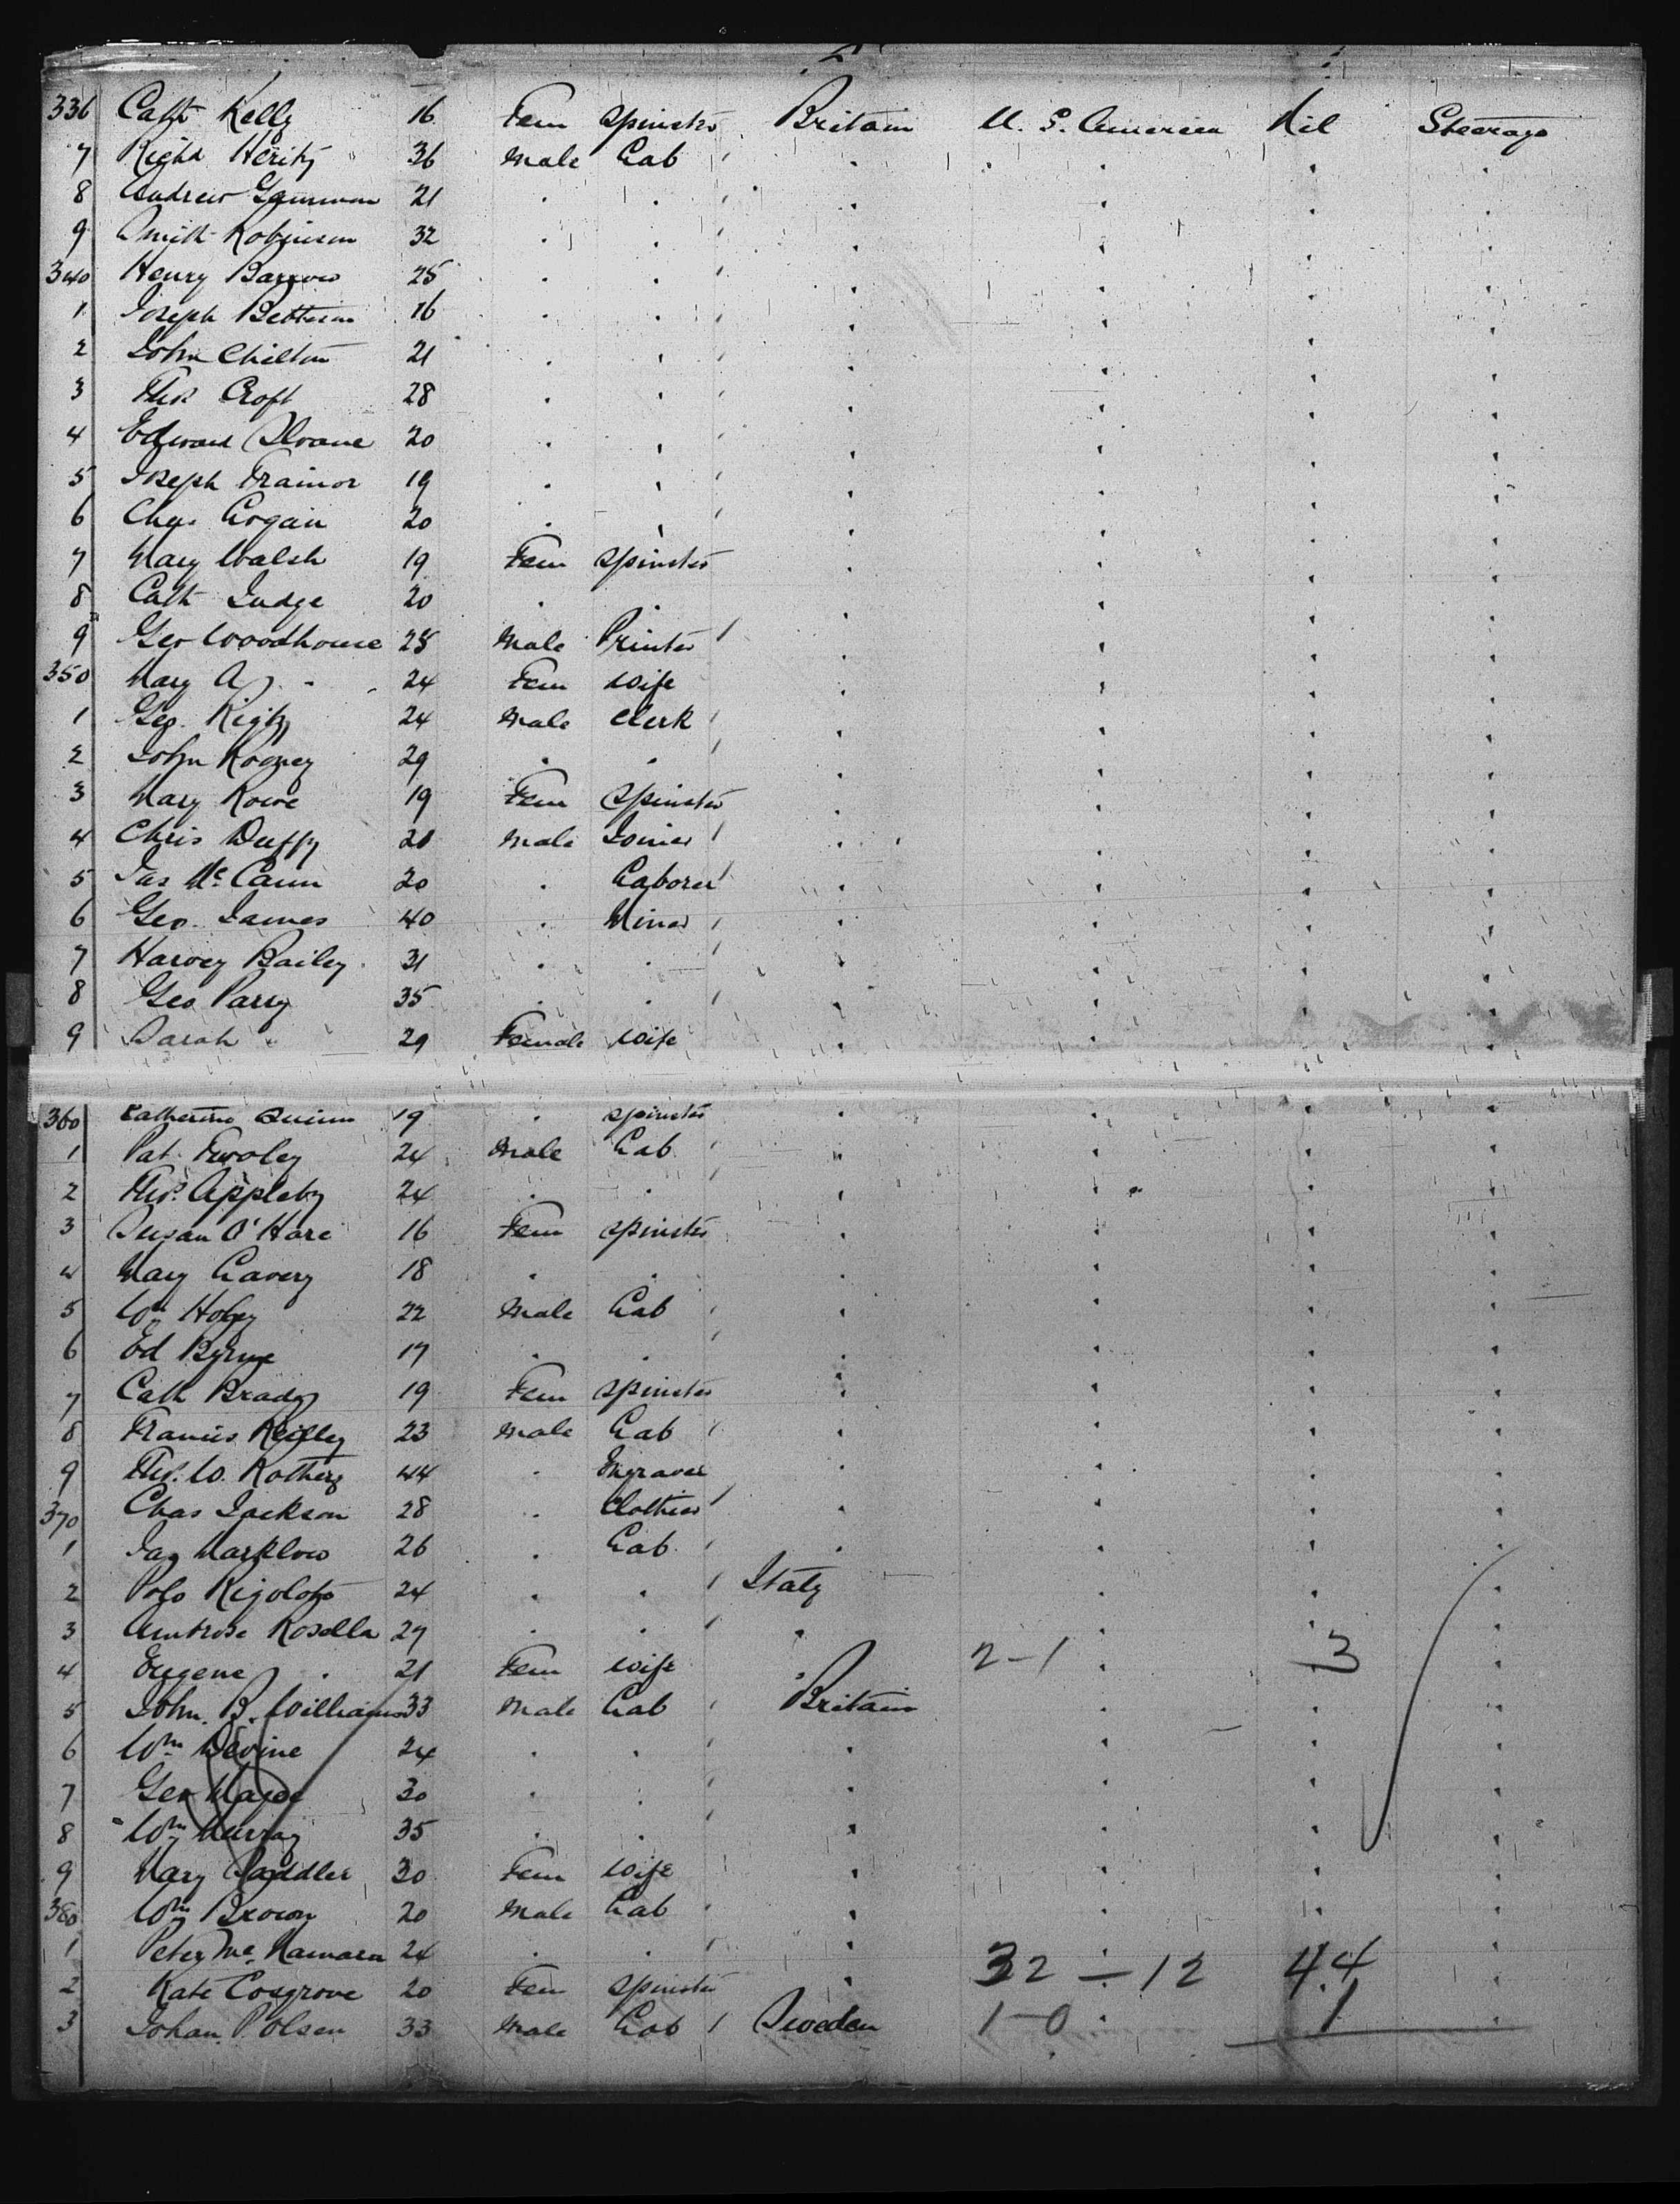 336 Cath Kelly 16 Fem Spinster Britain U. S. America Nil Steerage
7 Richd Herity " 36 Male Lab
8 Andrew Gammon 21 " "
9 Smith Robinson 32 " "
340 Henry Barrow 25 " "
1 Joseph 16 " "
2 John Chilton 21 " "
3 Thos Croft 28 " "
4 Edward Sloane 20 " "
5 Joseph Trainor 19 " "
6 Chas Grogan 20 " "
7 Mary Walsh 19 Fem Spinster
8 Cath Judge 20 " "
9 Geo Woodhouse 28 Male Printer
350 Mary A " 24 Fem Wife
1 Geo. Rigby 24 Male Clerk
2 John Rooney 29 " "
3 Mary Rowe 19 Fem Spinster
4 Chris Duffy 20 Male Joiner
5 Jas McCann 20 " Laborer
6 Geo. James 40 " Miner
7 Harvey Bailey 31 " "
8 Geo Parry 35 " "
9 Sarah " 29 Female Wife
360 Catherine Quinn 19 " Spinster
1 Pat 24 Male Lab
2 Thos. Appleby 24 " "
3 Susan O'Hare 16 Fem Spinster
4 Mary Lavery 18 " "
5 Wm 22 Male Lab
6 Ed Byrne 17 " "
7 Cath Brady 19 Fem Spinster
8 Francis Reilley 23 Male Lab
9 Thos. W. Rothery 44 " Engraver
370 Chas Jackson 28 " Clothier
1 Jas Marklow 26 " Lab
2 Polo 24 " " Italy
3 Ambrose Rosella 27 " " "
4 Eugene " 21 Fem Wife " 2-1 3
5 John. B. Williams 33 Male Lab Britain
6 Wm Devine 24 " "
7 Geo 30 " "
8 Wm Murray 35 " "
9 Mary Saddler 30 Fem Wife
380 Wm Brown 20 Male Lab
1 Peter McNamara 24 " " 32 - 12 44
2 Kate Cosgrove 20 Fem Spinster
3 Johan P. Olsen 33 Male Lab Sweden 1-0 1